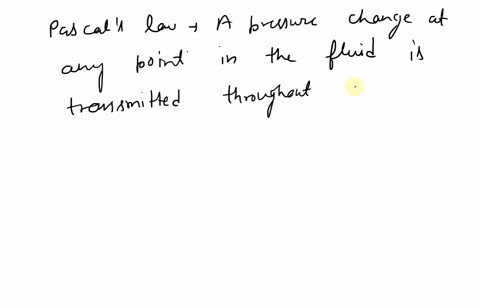 Pascal's law → A pressure change at
any point in the fluid is
transmitted throughout